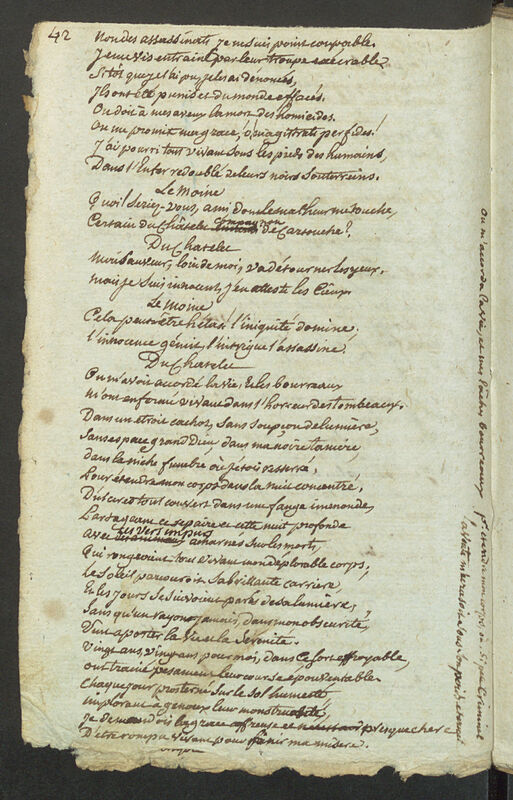 42
Non des assassinats je ne suis point coupable.
Je me vis entrainé par leur troupe exécrable
Sitôt que je l'ai pu, je les ai denoncés,
Ils ont été punis et du monde effacés.
On doit à mes aveux la mort des homicides.
On me promit ma grace, ô magistrats perfides!
J'ai pourri tout vivant sous les pieds des humains,
Dans l'Enfer redoublé de leurs noirs souterreins.
Le Moine
Quoi! seriez-vous, ami dont le malheur me touche,
Certain du Châtelet compagnon de Cartouche?
Du Chatelet
mon sauveur, loin de moi, va détourner les yeux.
mais je suis innocent, j'en atteste les Cieux.
Le Moine
Cela peut être hélas! l'iniquité domine;
l'innocence gémit, l'intrigue l'assassine.
Du Chatelet
On m'avoit accordé la vie, et les bourreaux
m'ont enfermé vivant dans l'horreur des tombeaux.
Dans un étroit cachot, sans soupçon de lumière,
Sans espace grand Dieu, dans ma noire taniere
dans la niche funebre où j'étois resserré,
Pour étendre mon corps dans la nuit concentré,
Du ciel et tout couvert dans une fange immonde,
Partageant ce repaire et cette nuit profonde
avec des vers impurs acharnés sur les morts,
Qui rongeoient tout vivant mon déplorable corps;
Le Soleil parcouroit sa brillante carriere,
Et les jours se suivoient parés de sa lumière,
Sans qu'un rayon jamais, dans mon obscurité,
Vint aporter la vie et la sérénité.
Vingt ans, vingt ans pour moi, dans ce fort effroyable,
ont trainé pesament leur course épouventable.
Chaque jour prosterné sur le sol humecté
implorant à genoux leur monstruosité,
Je demandois la grace affreuse et presque chere
D'être rompu vivant pour finir ma misere.
On m'acorda la vie, et mes lâches bourreaux